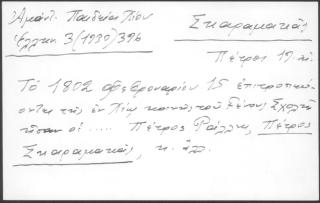 Ἀμάντ. Παιδεία Χίου
Ἑλλην. 3 (1930) 396
Σκαραμαγκᾶς
Πέτρος 19 αἰ.
Τὸ 1802 Φεβρουαρίου 15 ἐπιτροπεύ-
οντες τῆς ἐν Χίῳ κοινῆς τοῦ Γένους Σχολῆς
ἦσαν οἱ ..... Πέτρος Ράλλης, Πέτρος
Σκαραμαγκᾶς, κ. ἄλλ.